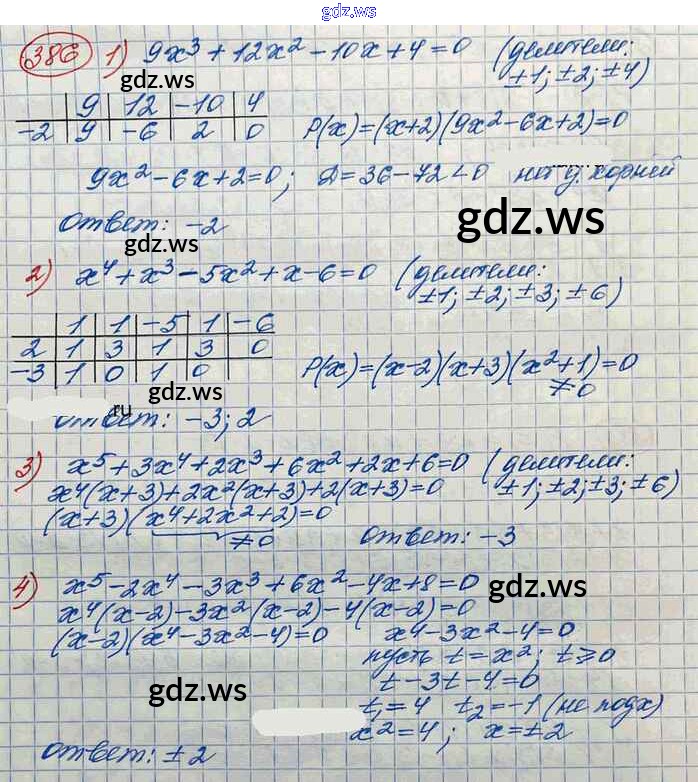 gdz.ws
386 1) 9x³+12x²-10x+4=0 (делители:
±1; ±2; ±4)
gdz.ws
9 12 -10 4
-2 9 -6 2 0 P(x)=(x+2)(9x²-6x+2)=0
9x²-6x+2=0; Д=36-72<0 нет д. корней
Ответ: -2
gdz.ws
gdz.ws
2) x⁴+x³-5x²+x-6=0 (делители:
±1; ±2; ±3; ±6)
1 1 -5 1 -6
2 1 3 1 3 0
-3 1 0 1 0 P(x)=(x-2)(x+3)(x²+1)=0
≠0
gdz.ws
ru
Ответ: -3; 2
3) x⁵+3x⁴+2x³+6x²+2x+6=0 (делители:
x⁴(x+3)+2x²(x+3)+2(x+3)=0 ±1; ±2; ±3; ±6)
(x+3)(x⁴+2x²+2)=0
≠0 Ответ: -3
gdz.ws
gdz.ws
4) x⁵-2x⁴-3x³+6x²-4x+8=0
gdz.ws
x⁴(x-2)-3x²(x-2)-4(x-2)=0
(x-2)(x⁴-3x²-4)=0 x⁴-3x²-4=0
пусть t=x²; t⩾0
t-3t-4=0
gdz.ws
t₁=4 t₂=-1 (не подх)
x²=4; x=±2
Ответ: ±2
gdz.ws